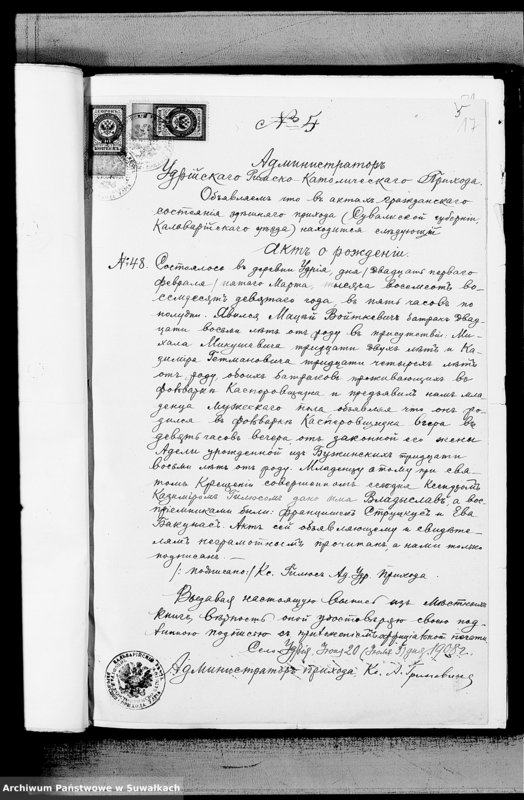 № 5
5
17
Администраторъ
Удрійскаго Римско-Католическаго Прихода.
Объявляетъ что въ актахъ гражданскаго
состоянія здѣшняго прихода (Сувалкской губерніи,
Калварійскаго уѣзда) находится слѣдующій
Актъ о рожденіи.
№ 48. Состоялось въ деревни Удрія, дня (двадцать перваго
февраля) пятаго Марта, тысяча восемсотъ во-
семдесятъ девятаго года, въ пять часовъ по
полудни. Явился Мацей Войткевичъ батракъ двад-
цати восьми лѣтъ отъ роду въ присутствіи Ми-
хала Микушевича тридцати двухъ лѣтъ и Ка-
зиміра Гетмановича тридцати четырехъ лѣтъ
отъ роду, обоихъ батраковъ проживающихъ въ
фольваркѣ Касперовщизна и предъявилъ намъ мла-
денца мужескаго пола объявляя что онъ ро-
дился въ фольваркѣ Касперовщизна вчера въ
девять часовъ вечера отъ законной его жены
Адели урожденной изъ Бужинскихъ тридцати
восьми лѣтъ отъ роду. Младенцу этому при свя-
томъ Крещеніи совершенномъ сегодня Ксендзомъ
Казиміромъ дано имя Владыславъ, а вос-
пріемниками были: Францишекъ и Ева
Актъ сей объявляющему и свидѣте-
лямъ неграмотнымъ прочитанъ, а нами только
подписанъ. —
/: подписано:/ Кс. Ад. Удр. Прихода.
Выдавая настоящую выпись изъ мѣстной
книги, вѣрность оной удостовѣряю своею под-
линною подписью съ приложеніемъ оффиціальной печати.
Село Удрія, Іюня 20 (Іюля 3) дня 1905 г.
Администраторъ прихода Кс. А.
Archiwum Państwowe w Suwałkach